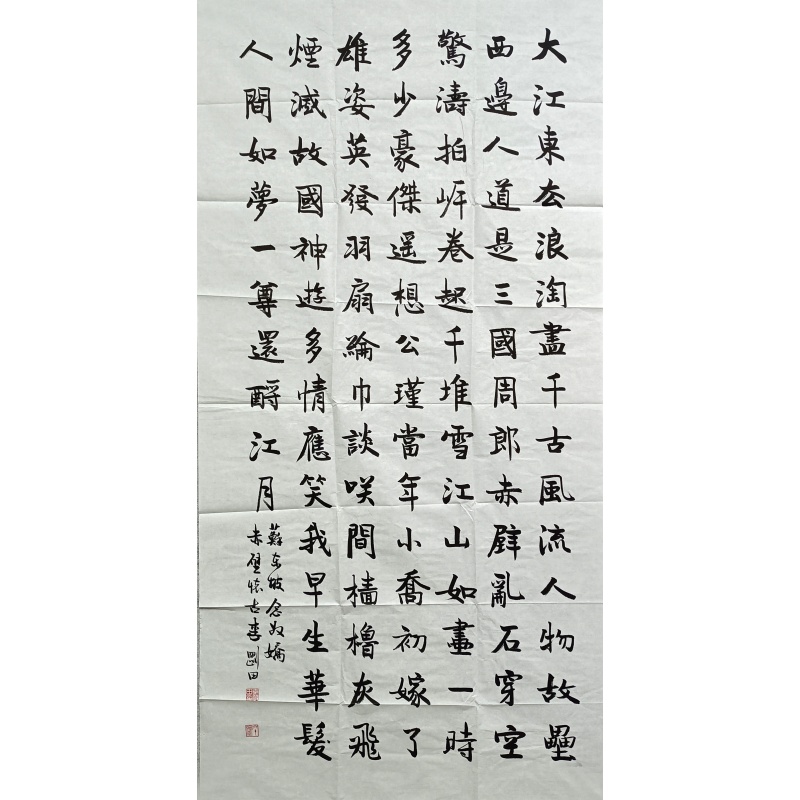 大江東去浪淘盡千古風流人物故壘
西邊人道是三國周郎赤壁亂石穿空
驚濤拍岸卷起千堆雪江山如畫一時
多少豪傑遥想公瑾當年小喬初嫁了
雄姿英發羽扇綸巾談咲間檣櫓灰飛
煙滅故國神遊多情應笑我早生華髮
人間如夢一尊還酹江月
蘇東坡念奴嬌
赤壁懷古李剛田